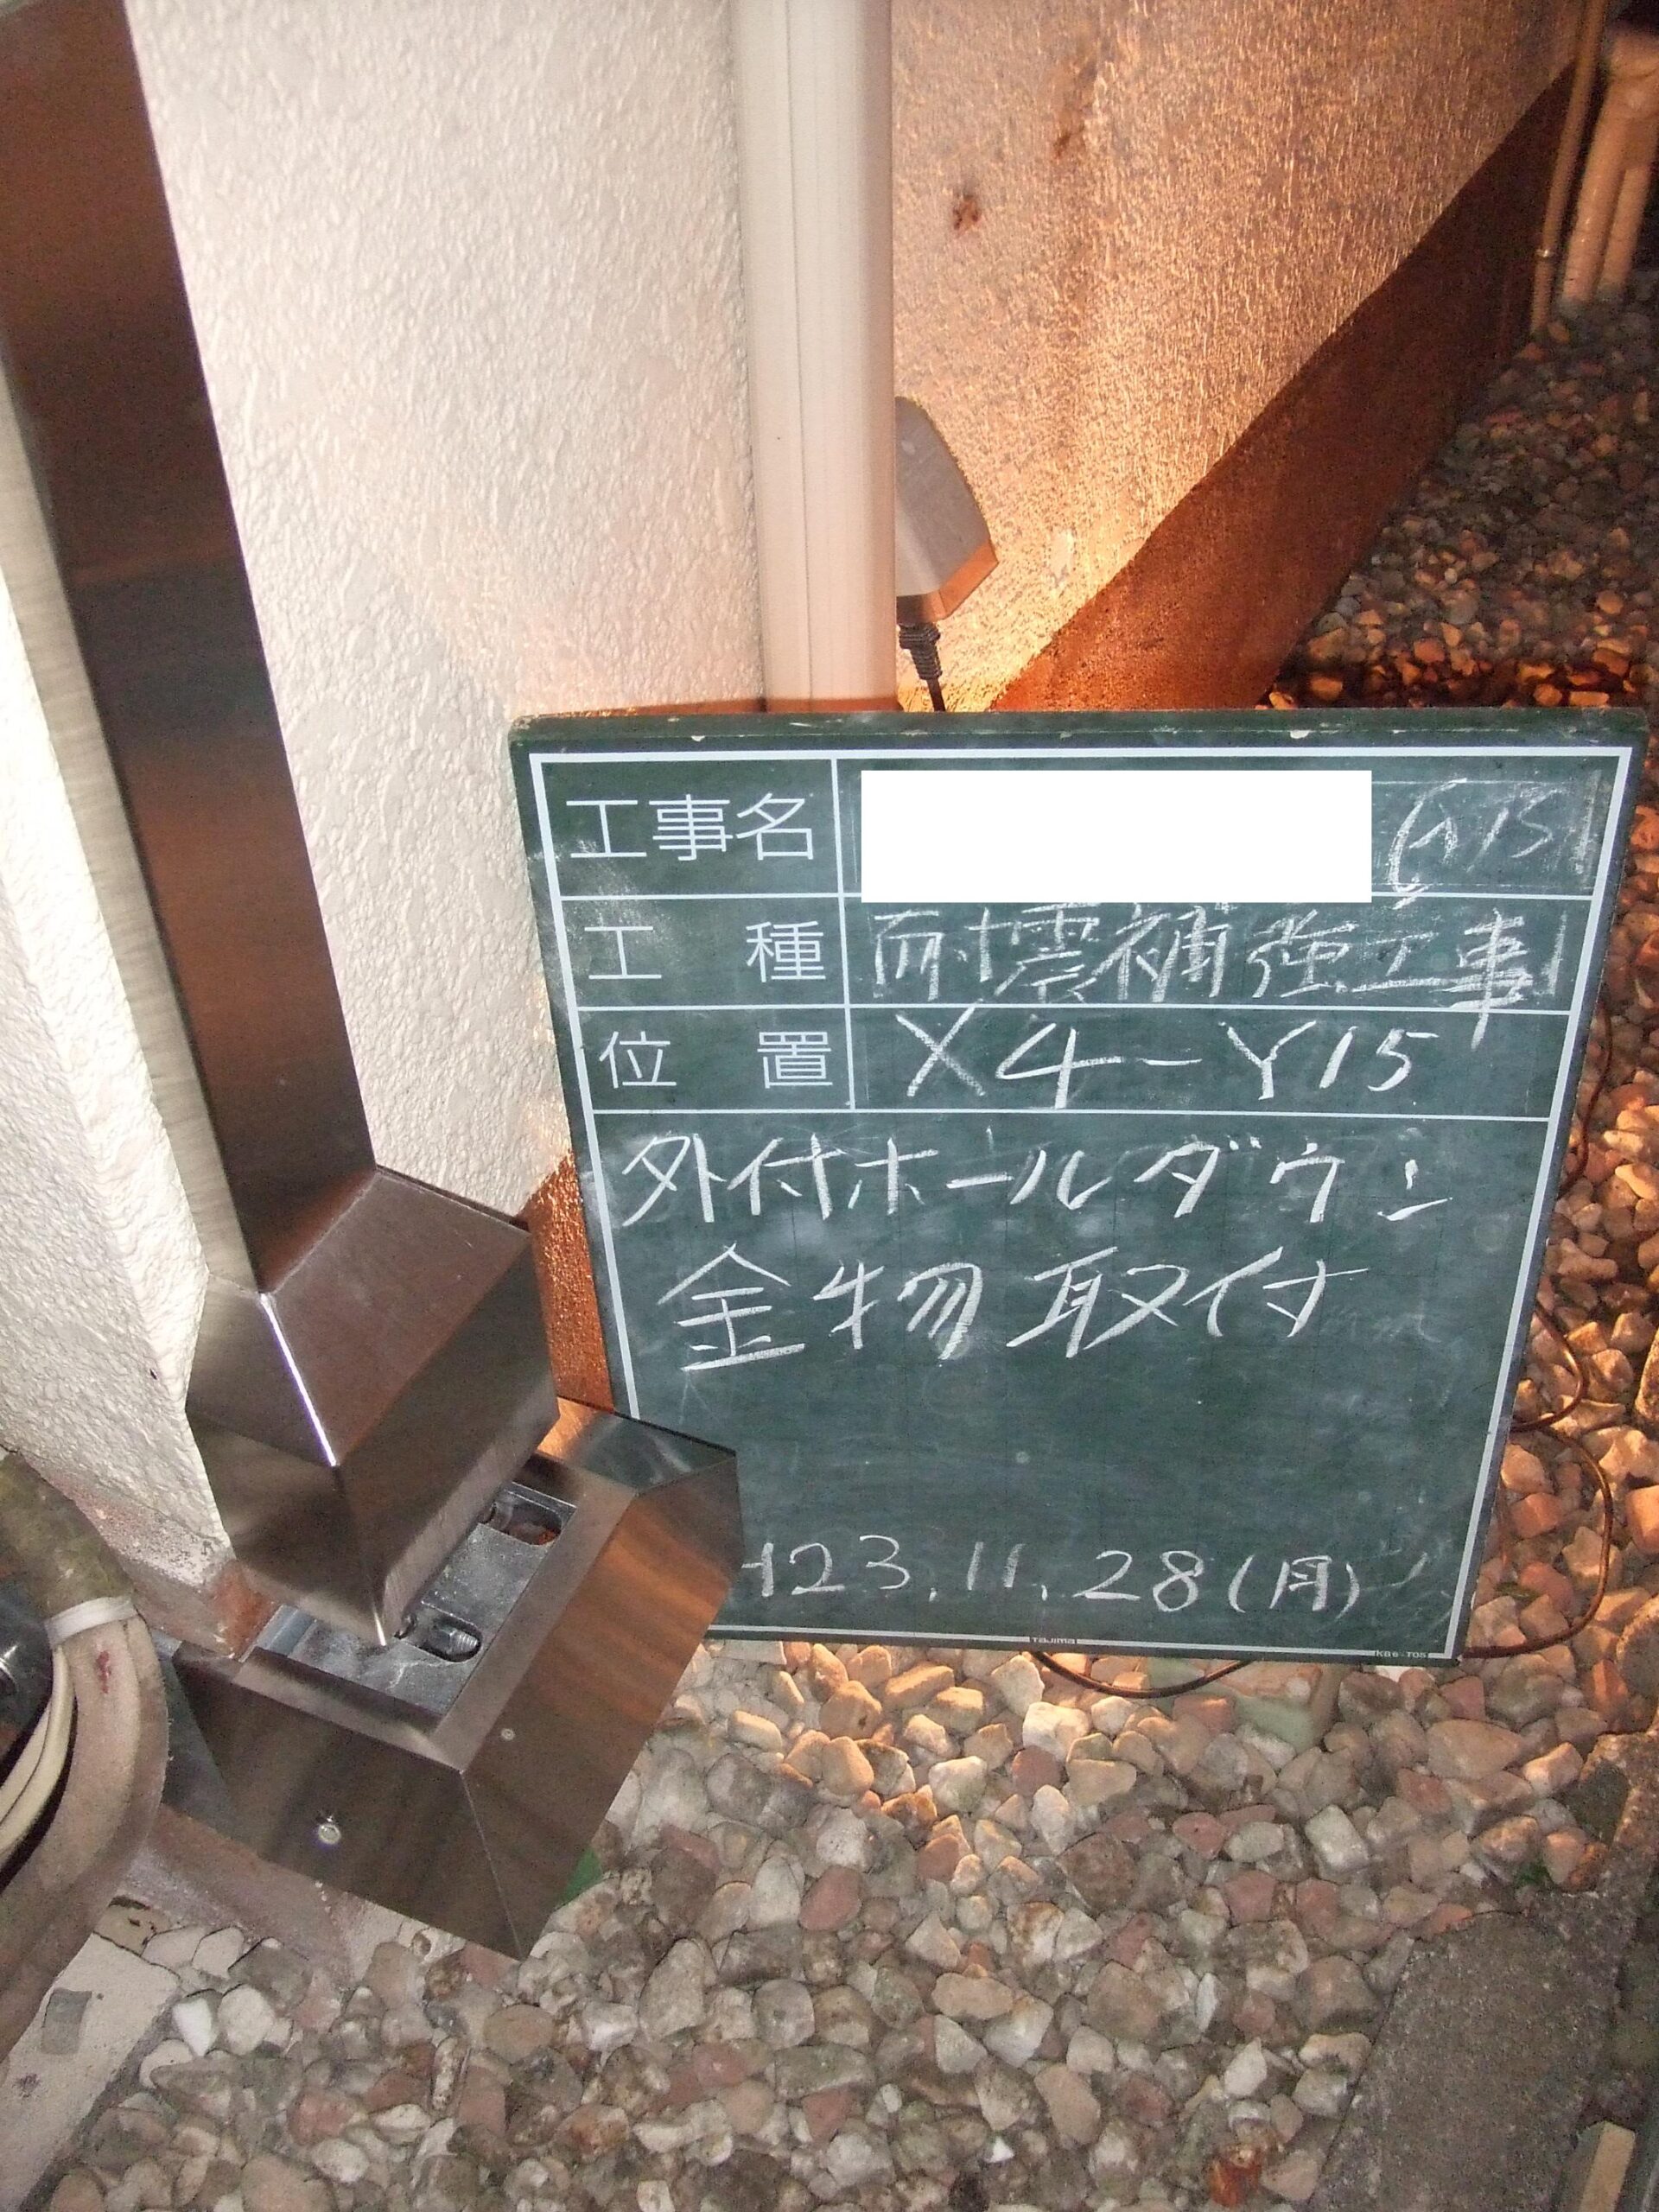 工事名
工 種 耐震補強工事
位 置 X4-Y15
外付ホールダウン
金物取付
H23.11.28(月)
Tajima
KB6-T05